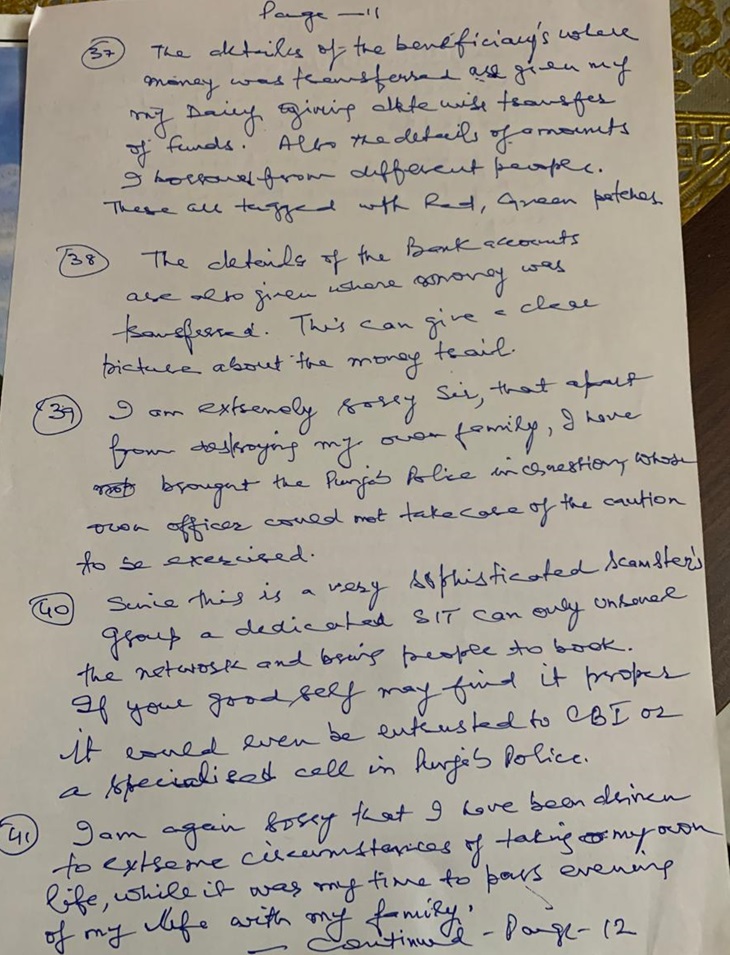 Page - 11
(37) The details of the beneficiary's where
money was transferred are given my
my Daily giving date wise transfer
of funds. Also the details of amounts
I borrowed from different people.
These all tagged with Red, Green patches
(38) The details of the Bank accounts
are also given where money was
transferred. This can give a clear
picture about the money trail.
(39) I am extremely sorry Sir, that apart
from destroying my own family, I have
brought the Punjab Police in question, whose
own officer could not take care of the caution
to be exercised.
(40) Since this is a very sophisticated scamster's
group a dedicated SIT can only unravel
the network and bring people to book.
If your good self may find it proper
it could even be entrusted to CBI or
a specialised cell in Punjab Police.
(41) I am again sorry that I have been driven
to extreme circumstances of taking my own
life, while it was my time to pass evening
of my life with my family.
— Continued - Page - 12